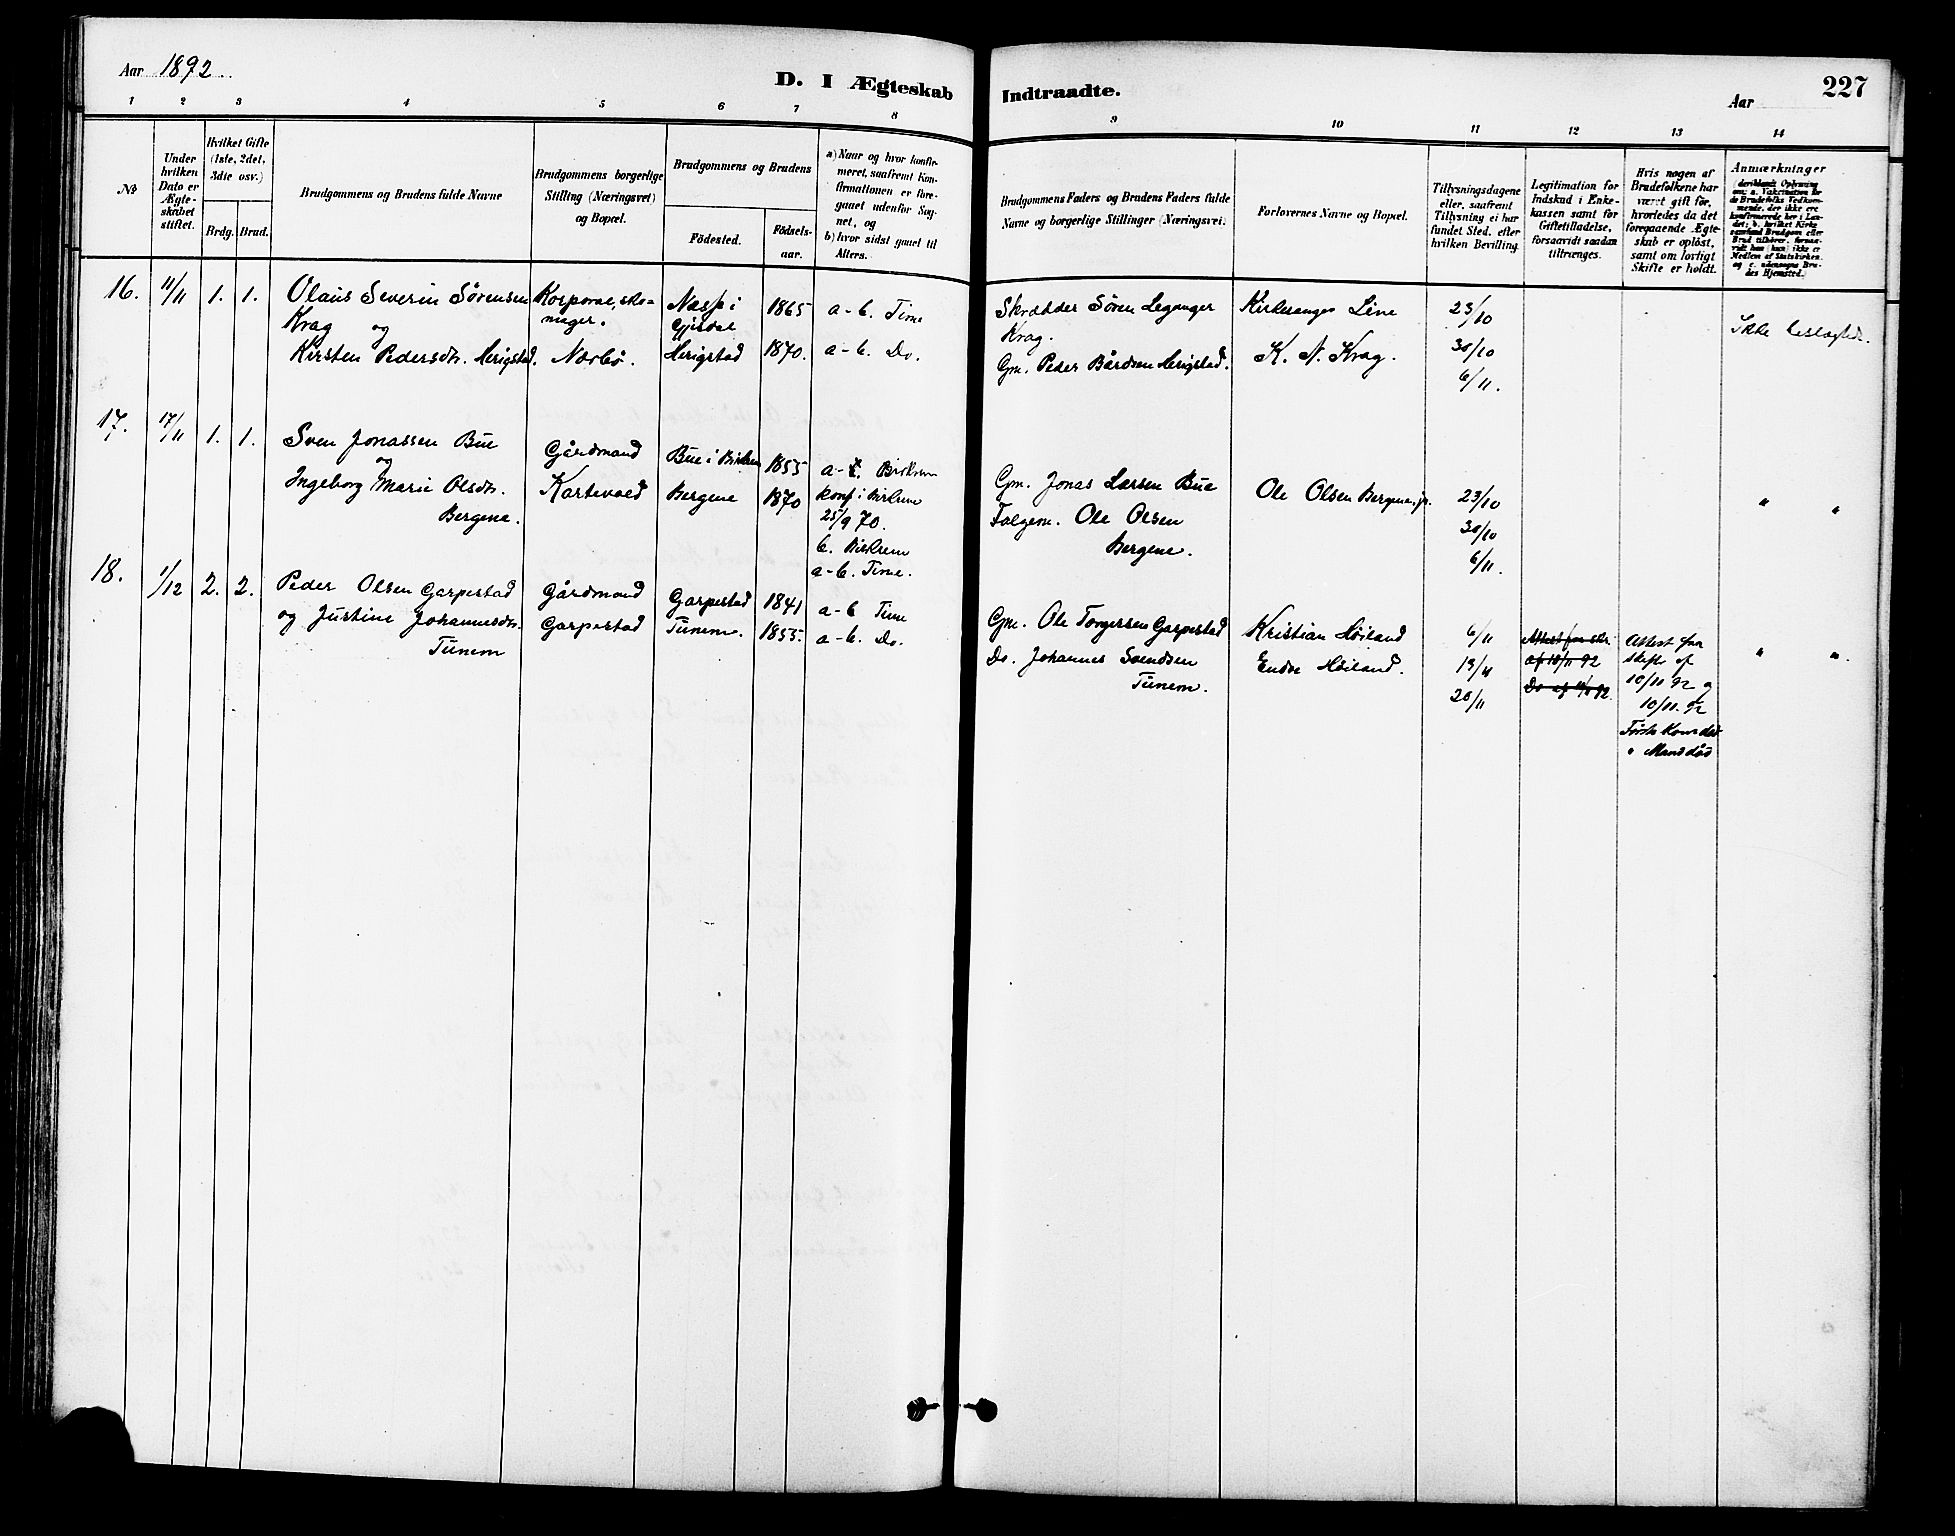 Aar 1892
D. I Ægteskab Indtraadte.
Aar
227
1 2 3 4 5 6 7 8 9 10 11 12 13 14
No
Under hvilken Dato er Ægte-skabet stiftet.
Hvilket Gifte (1ste, 2det, 3dte osv.)
Brdg. Brud.
Brudgommens og Brudens fulde Navne
Brudgommens borgerlige Stilling (Næringsvei) og Bopæl.
Brudgommens og Brudens
Födested.
Födsels-aar.
a) Naar og hvor konfir-meret, saafremt Kon-firmationen er fore-gaaet udenfor Sog-net, og
b) hvor sidst gaaet til Alters.
Brudgommens Faders og Brudens Faders fulde Navne og borgerlige Stillinger (Næringsvei).
Forlovernes Navne og Bopæl.
Tillysningsdagene eller, saafremt Tillysning ei har fundet Sted, efter hvilken Bevilling.
Legitimation for Indskud i Enke-kassen samt for Giftetilladelse, forsaavidt saadan tiltrænges.
Hvis nogen af Brudefolkene har været gift för, hvorledes da det foregaaende Ægte-skab er oplöst, samt om lovligt Skifte er holdt.
Anmærkninger
16. 11/11 1. 1.
Olaus Severin Sörensen
Krag
og
Kirsten Pedersdtr. Herigstad.
Korporal, sko-
mager.
Nærbö.
Næssp i
Gjesdal
Herigstad
1865
1870.
a-b. Time
a-b. Do.
Skrædder Sören Leganger
Krag.
Gm. Peder Bårdsen Herigstad.
Kirkesanger Line
K. N. Krag.
23/10
30/10
6/11.
Ikke beslægtede.
17. 17/11 1. 1.
Sven Jonassen Bue
og
Ingeborg Marie Olsdtr.
Bergene.
Gårdmand
Kartevold
Bue i Birkrem
Bergene
1855
1870
a-b. Birkrem
konf i Birkrem
25/9 70.
b. Birkrem
a-b. Time.
Gm. Jonas Larsen Bue
Ole Olsen
Bergene.
Ole Olsen Bergene jr.
23/10
30/10
6/11.
" "
18. 1/12 2. 2.
Peder Olsen Garpestad
og Justine Johannesdtr.
Tunem
Gårdmand
Garpestad
Garpestad
Tunem.
1841
1855.
a-b Time
a-b. Do.
Gm. Ole Torgersen Garpestad
Do. Johannes Svendsen
Tunem.
Kristian Höiland
Endre Höiland.
6/11
13/11
20/11
Attest fra skr.
af 10/11 92
Attest fra
skifte af
10/11 92 og
10/11. 92
Förste Kone död
" Mand död
" ".